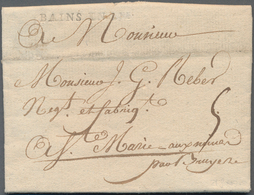 BAINS
A Monsieur
Monsieur J. G. Reber
Negt. et fabriqt.
A Ste. Marie aux mines
par Bruyere
5